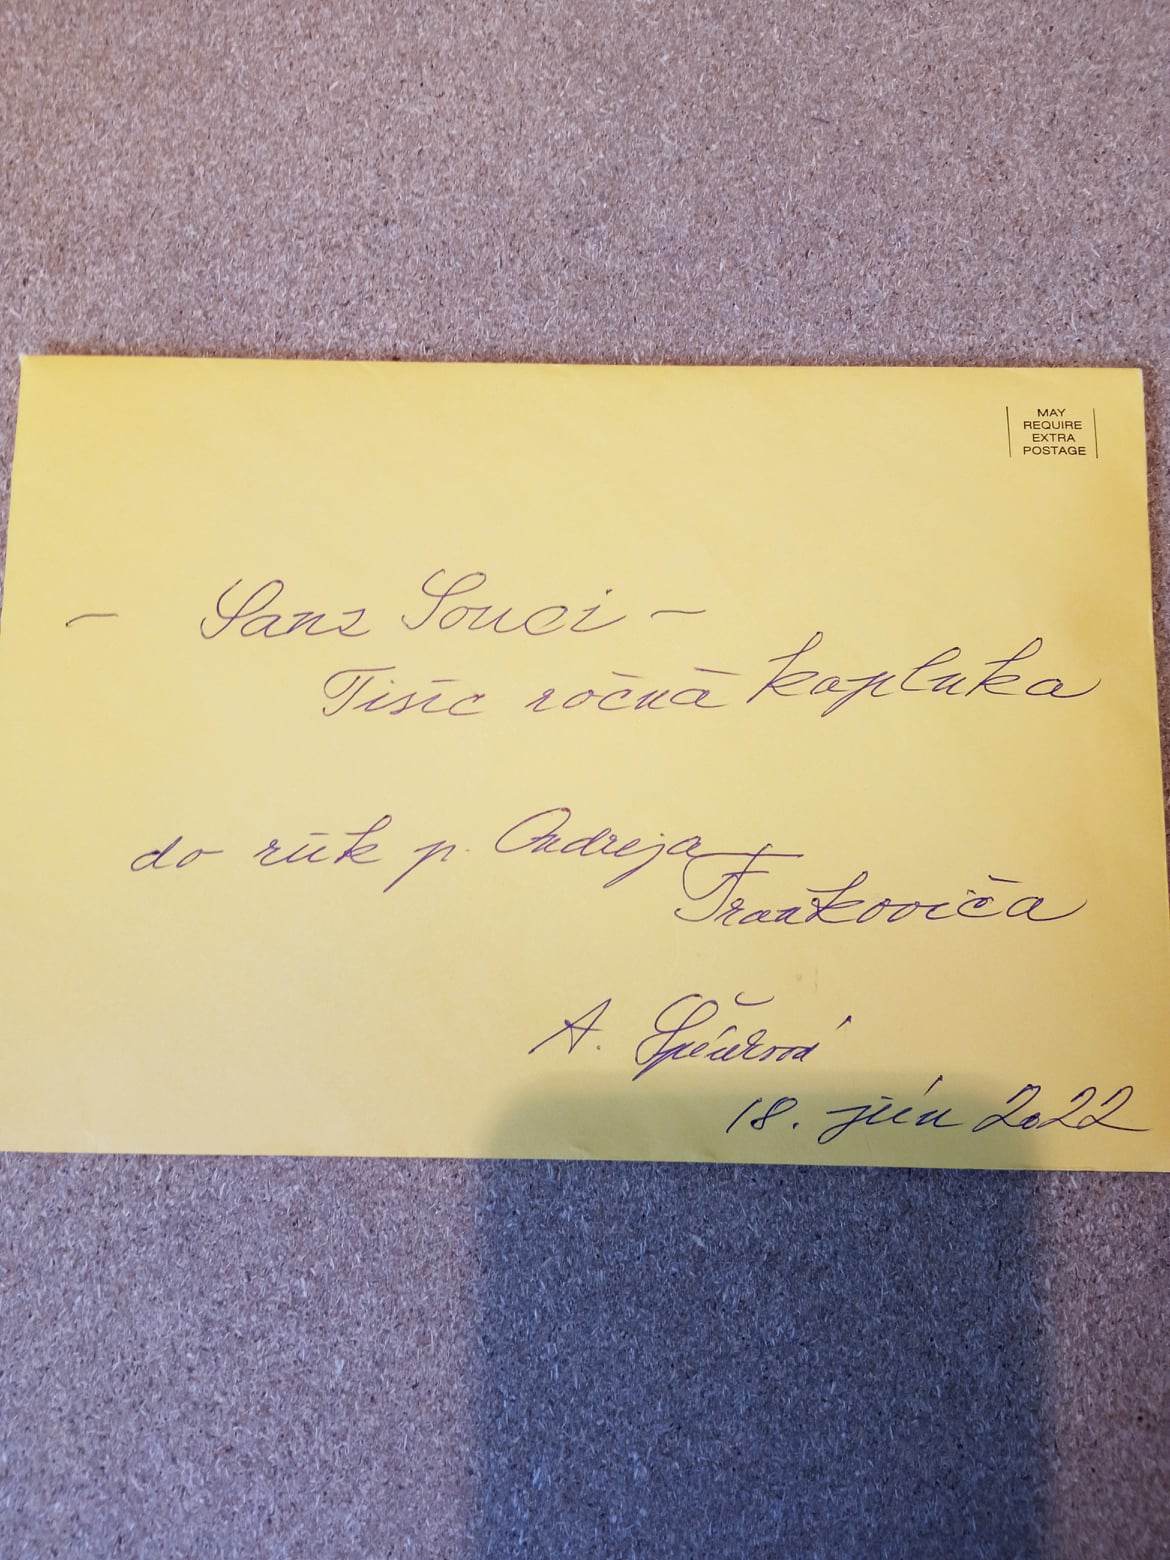 MAY
REQUIRE
EXTRA
POSTAGE
- Sans Souci -
Tisíc ročná kaplnka
do rúk p. Ondreja
Frankoviča
A.
18. jún 2022